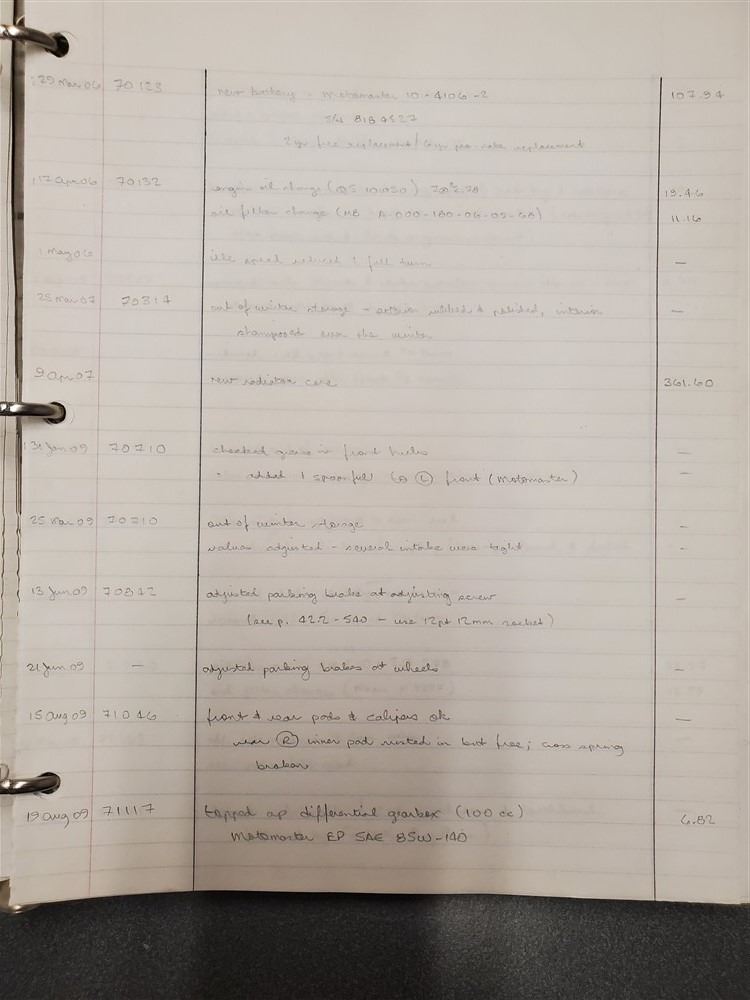 29 Mar 06 70123 new battery - Motomaster 10-4106-2 107.94
S/N 81B4527
2 yr free replacement/6 yr pro-rate replacement
17 Apr 06 70132 engin oil change (QS 10W30) 19.46
oil filter change (MB A-000-180-06-09-68) 11.16
1 May 06 idle speed reduced 1 full turn —
25 Mar 07 70317 out of winter storage - exterior rubbed & polished, interior —
shampooed over the winter
9 Apr 07 new radiator core 361.60
31 Jan 09 70710 checked grease in front hubs —
- added 1 spoonful to Ⓛ front (Motomaster) —
25 Mar 09 70710 out of winter storage —
valves adjusted - several intake were tight -
13 Jun 09 70842 adjusted parking brake at adjusting screw —
(see p. 42.2-540 - use 12pt 12mm socket)
21 Jun 09 — adjusted parking brakes at wheels —
15 Aug 09 71046 front & rear pads & calipers ok —
rear Ⓡ inner pad rusted in but free; cross spring
broken
19 Aug 09 71117 topped up differential gearbox (100 cc) 6.82
Motomaster EP SAE 85W-140